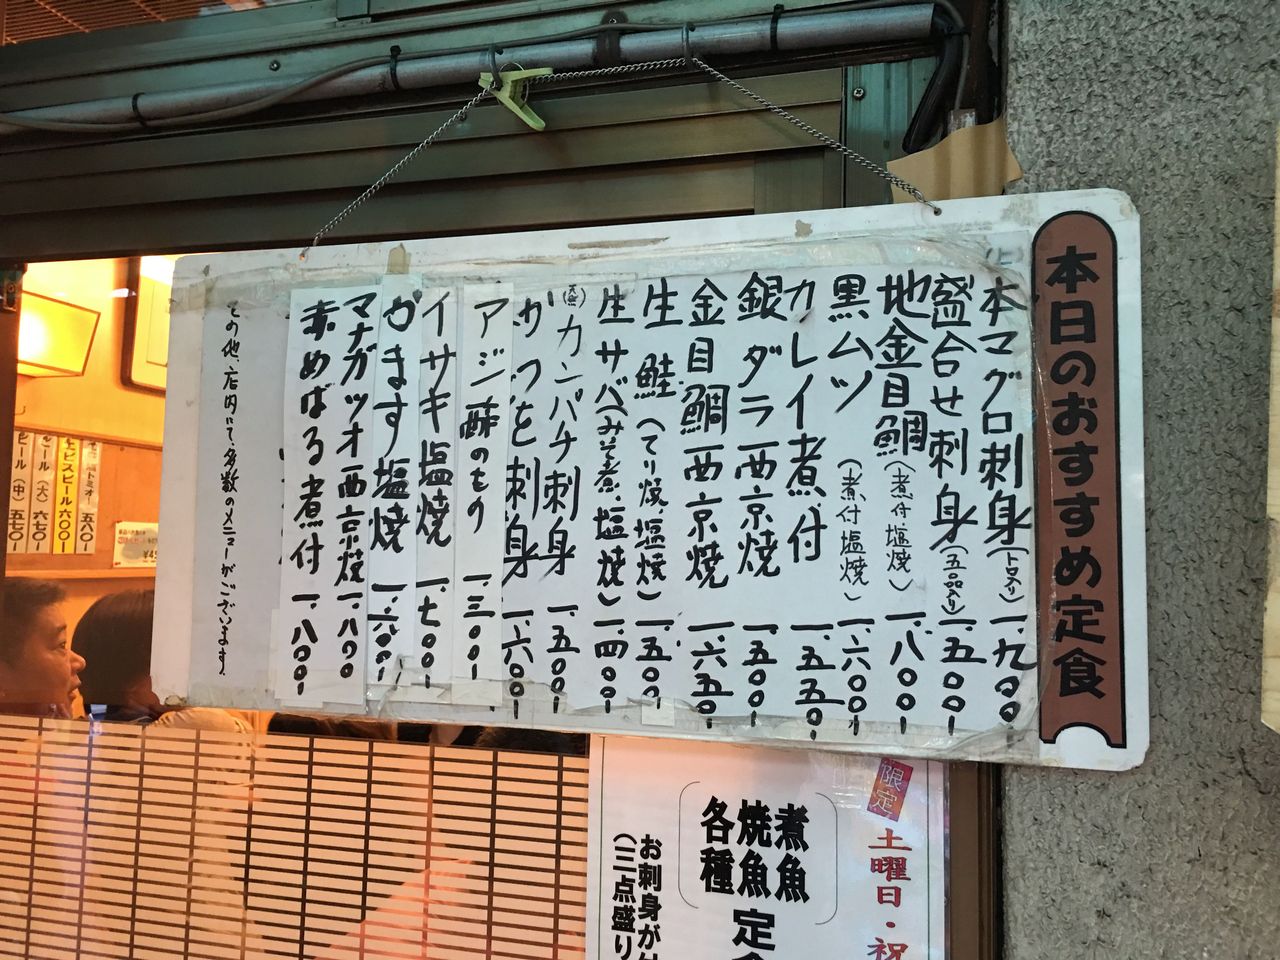 本日のおすすめ定食
本マグロ刺身(トロ入り) 一、九〇〇-
盛合せ刺身(五品入り) 一、五〇〇-
地金目鯛(煮付、塩焼) 一、八〇〇-
黒ムツ(煮付、塩焼) 一、六〇〇-
カレイ煮付 一、五五〇-
銀ダラ西京焼 一、五〇〇-
金目鯛西京焼 一、六五〇-
生鮭(てり焼、塩焼) 一、五〇〇-
生サバ(みそ煮、塩焼) 一、四〇〇-
(天然)カンパチ刺身 一、五〇〇-
かつを刺身 一、六〇〇-
アジ酢のもの 一、三〇〇-
イサキ塩焼 一、七〇〇-
かます塩焼 一、六〇〇-
マナガツオ西京焼 一、八〇〇
赤めばる煮付 一、八〇〇-
その他、店内にて、多数のメニューがございます。
限定
土曜日・祝
煮魚
焼魚定
各種
お刺身が
(三点盛り
トミオー 五八〇
ビスビール 六〇〇
ビール(大) 六七〇
ビール(中) 五七〇